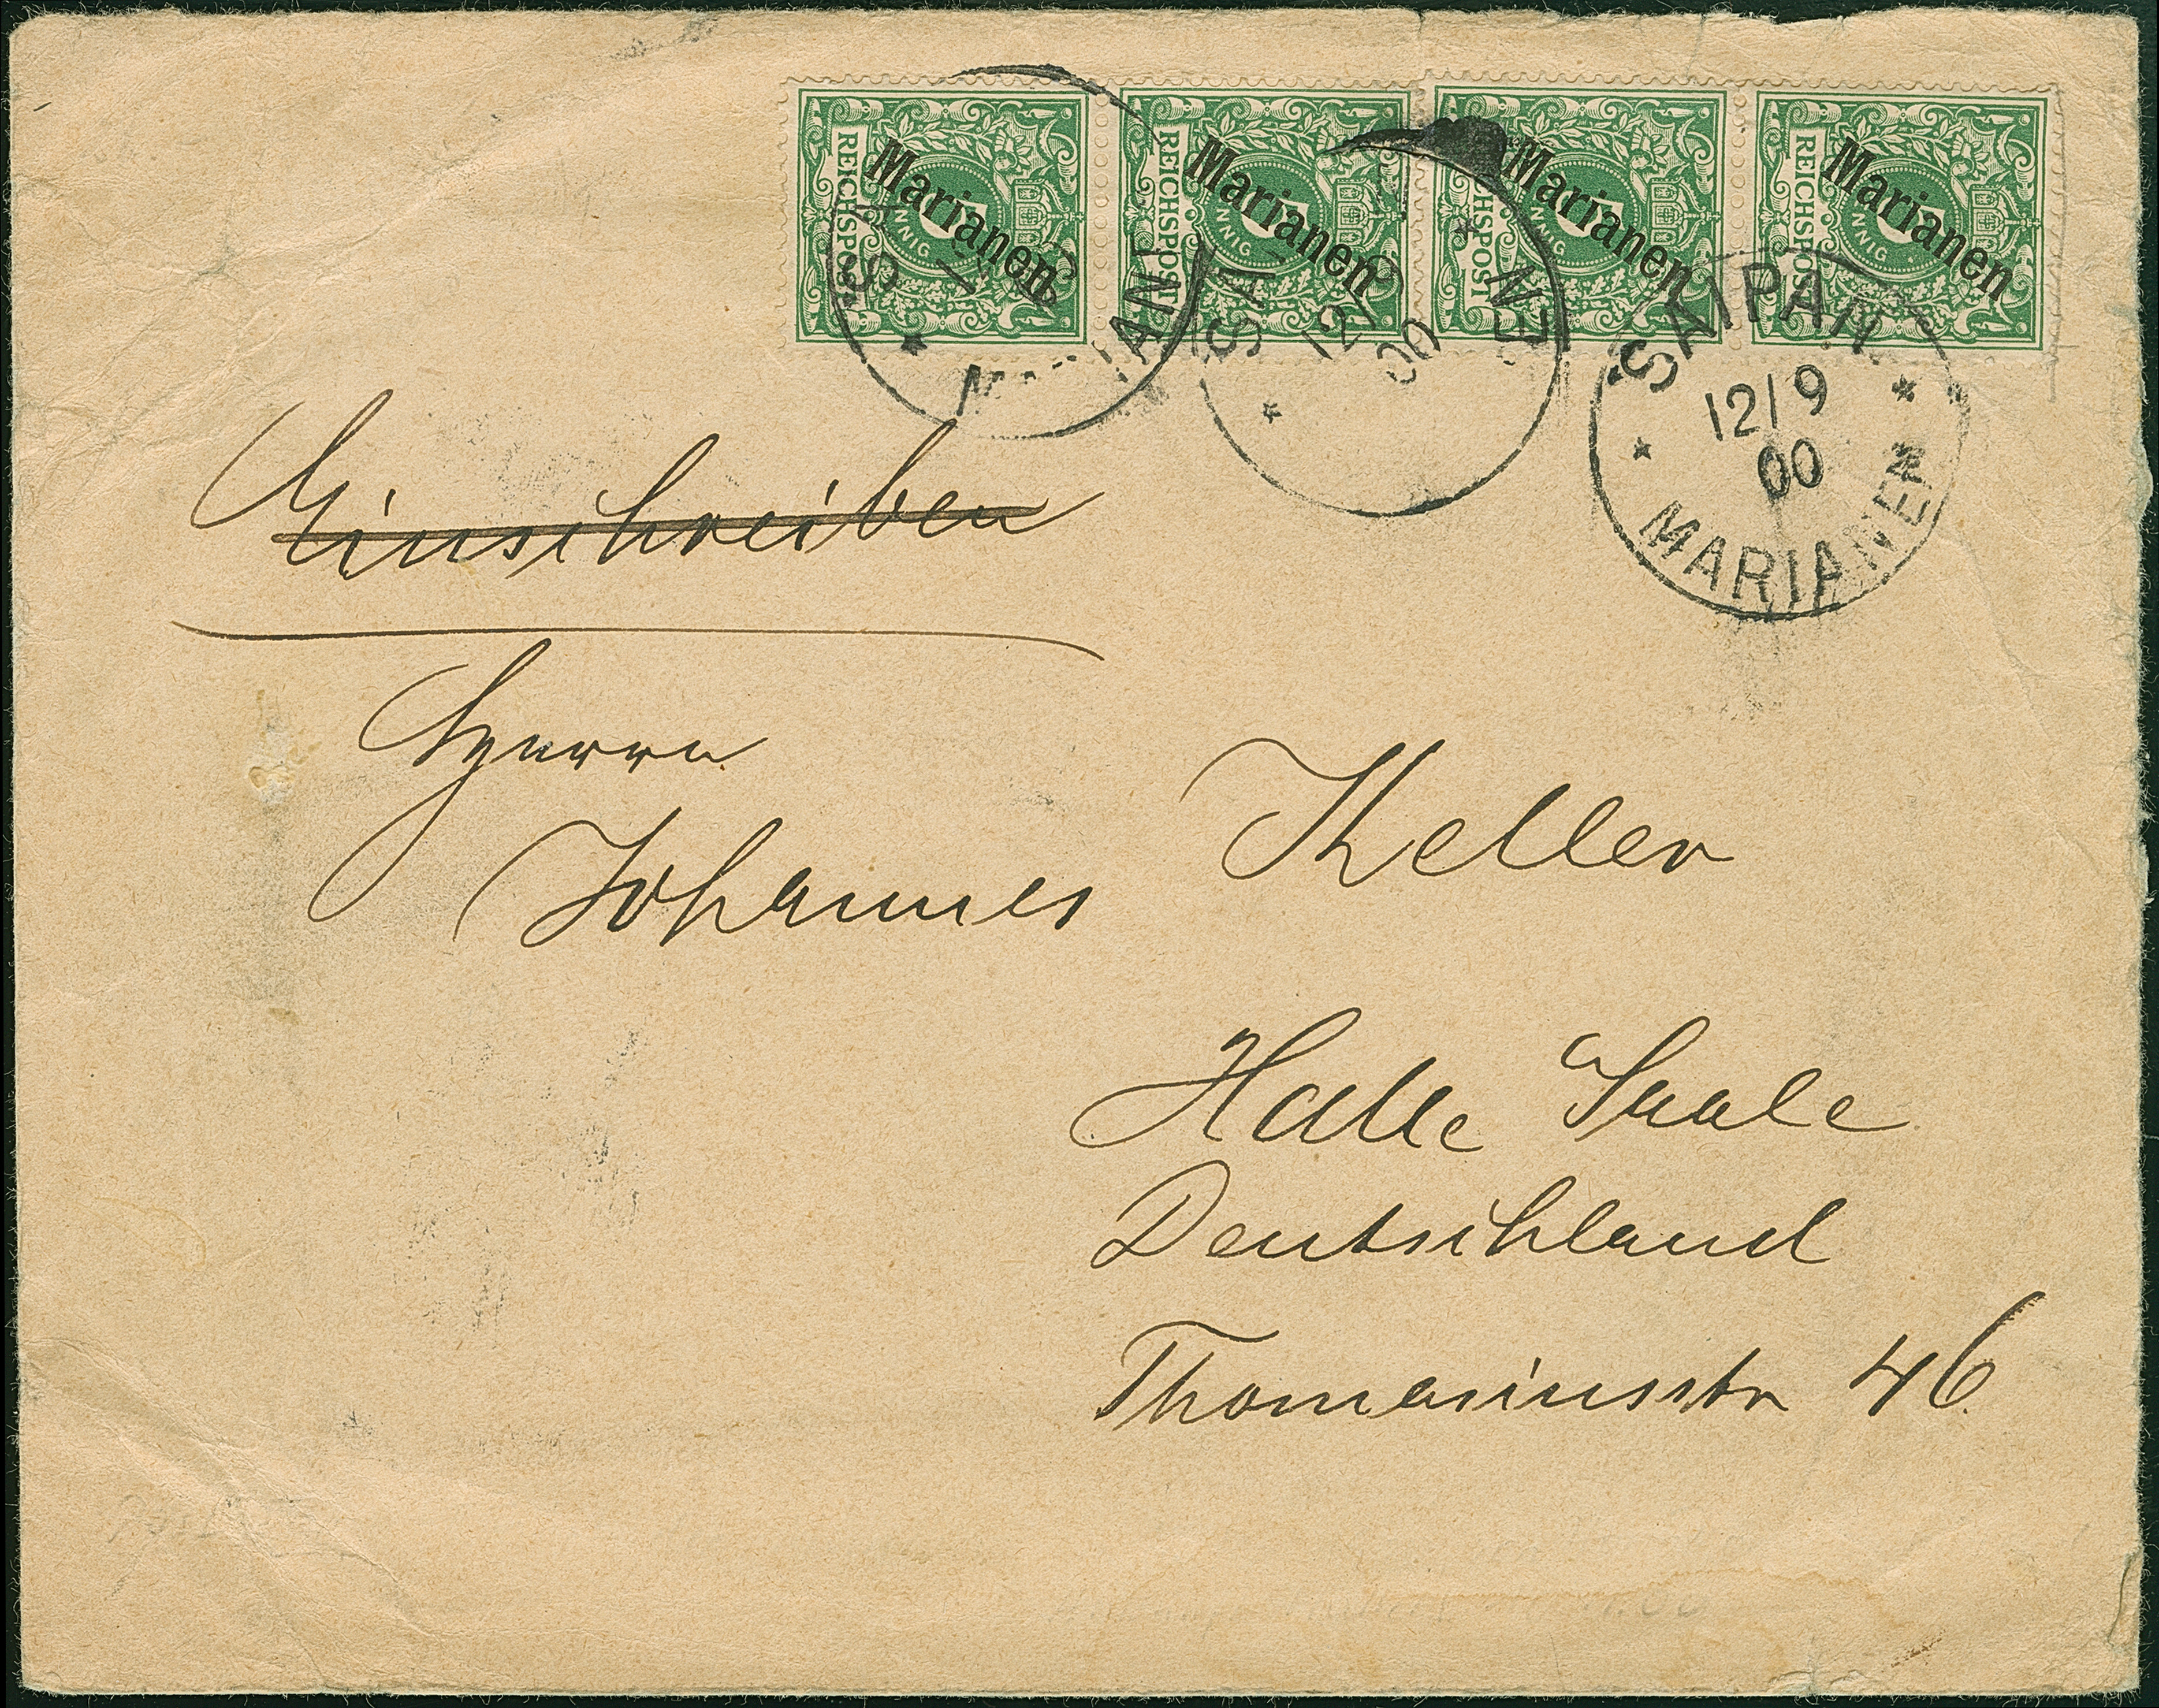 REICHSPOST Marianen
REICHSPOST Marianen
REICHSPOST Marianen
REICHSPOST Marianen
SAIPAN
12/9
00
MARIANEN
SA
12/9
00
Einschreiben
Herrn
Johannes Keller
Halle Saale
Deutschland
Thomasiusstr 46